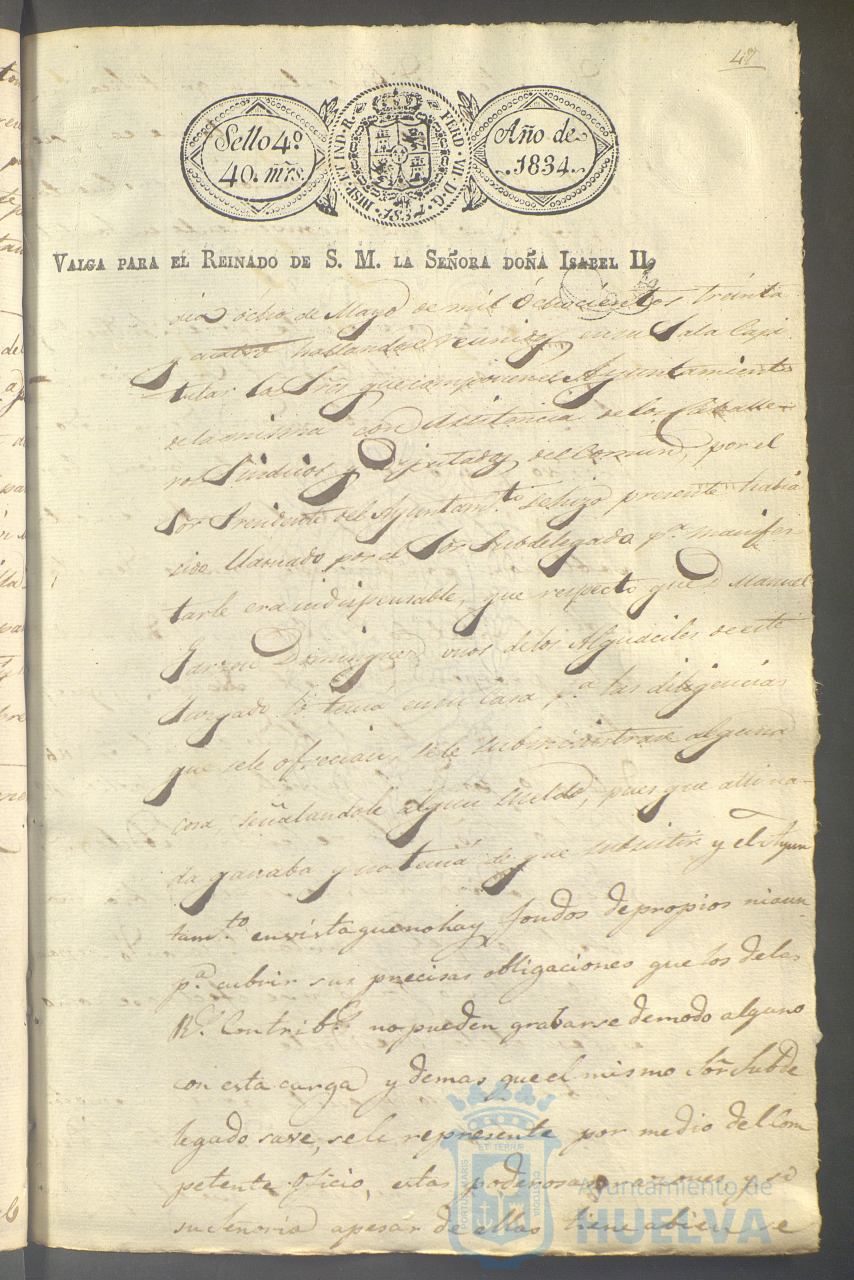 47
Sello 4º
40. mrs.
HISP. ET IND. R. FERD. VII. D. G. 1834.
Año de
1834.
VALGA PARA EL REINADO DE S. M. LA SEÑORA DOÑA ISABEL II.
dia ocho de Mayo de mil Ochocientos treinta
y cuatro hallandose reunidos en su Sala Capi
tular los Sres que componen el Ayuntamiento
de la misma con Asistencia de los Caballe-
ros Sindicos y Diputados del Comun, por el
Sor Presidente del Ayuntam.to se hizo presente habia
sido llamado por el Sor Subdelegado p.a manifes
tarle era indispensable, que respecto que D. Manuel
Dominguez unos de los Alguaciles de este
Juzgado lo tenia en su Casa p.a las diligencias
que se le ofrecian, se le subministrase alguna
cosa, señalandole algun sueldo, pues que alli na-
da ganaba y no tenia de que subsistir y el Ayun
tam.to en vista que no hay fondos de propios ni aun
p.a cubrir sus precisas obligaciones que los de las
R.s Contrib.s no pueden grabarse de modo alguno
con esta carga y demas que el mismo Sor Subde
legado save, se le represente por medio del Com
petente Oficio, estas poderosas razones y si
su Señoria apesar de ellas tiene a bien se
PORTUS MARIS
ET TERRAE
CUSTODIA
Ayuntamiento de
HUELVA